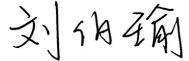 刘伯瑜